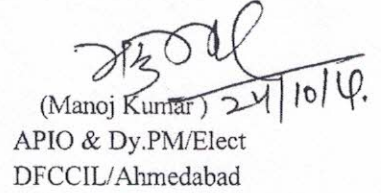 (Manoj Kumar) 24/10/
APIO & Dy.PM/Elect
DFCCIL/Ahmedabad